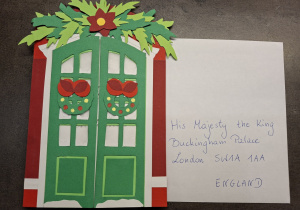 His Majesty the King
Buckingham Palace
London SW1A 1AA
ENGLAND